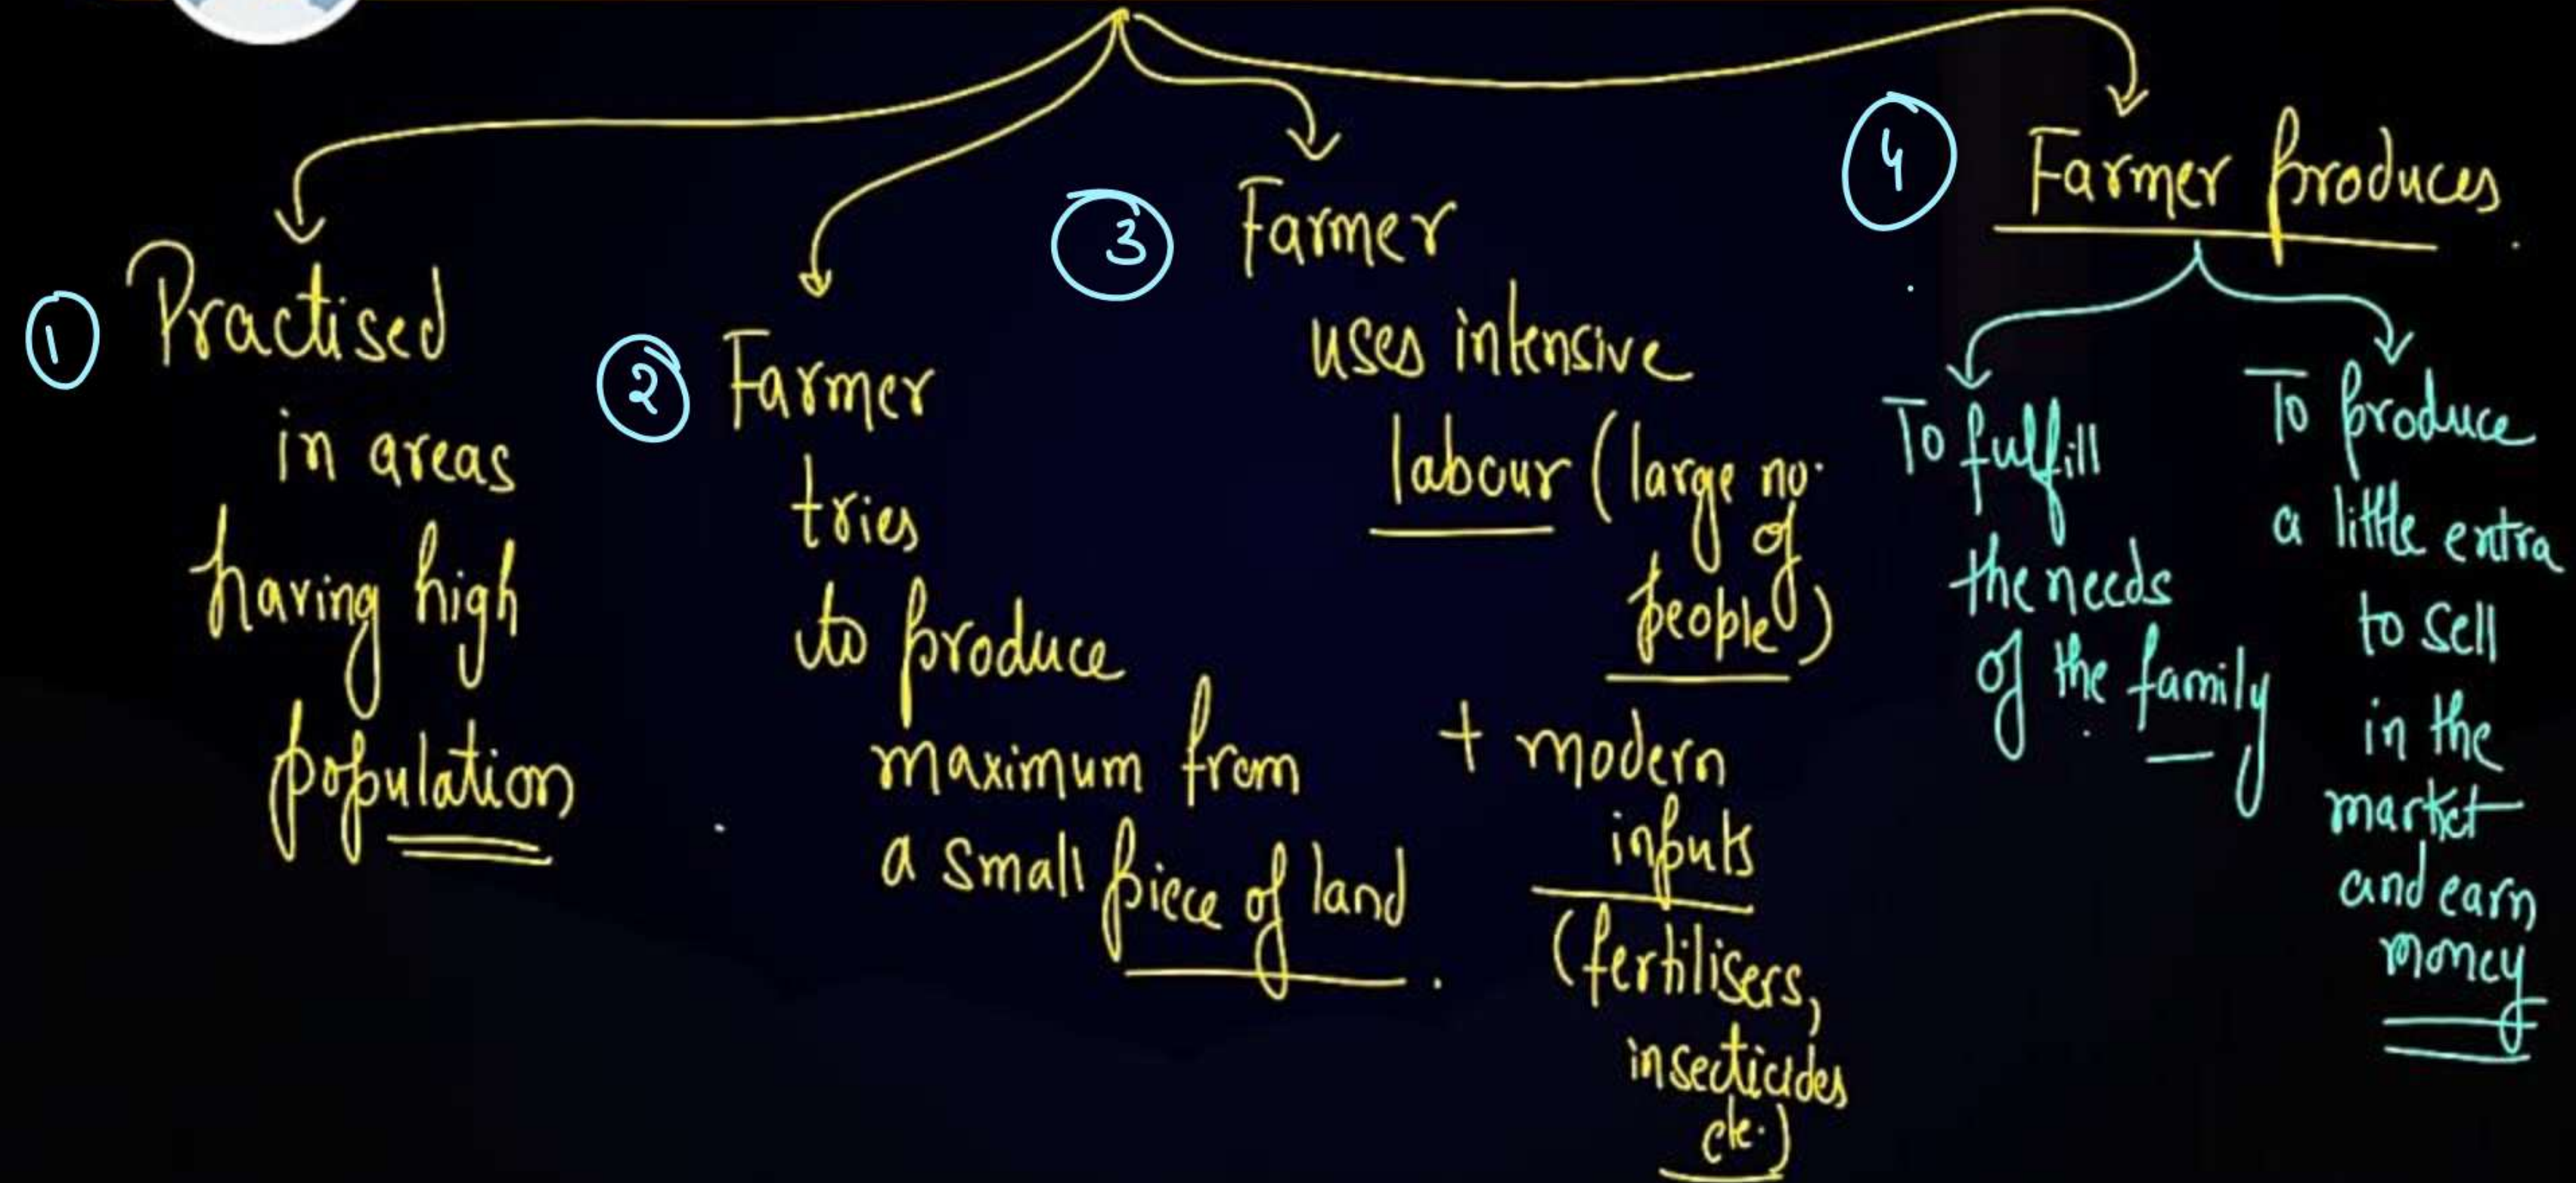 1
Practised
in areas
having high
population
2
Farmer
tries
to produce
maximum from
a small piece of land.
3
Farmer
uses intensive
labour (large no.
of
people)
+ modern
inputs
(fertilisers,
insecticides
etc.)
4
Farmer produces.
To fulfill
the needs
of the family
To produce
a little extra
to sell
in the
market
and earn
money